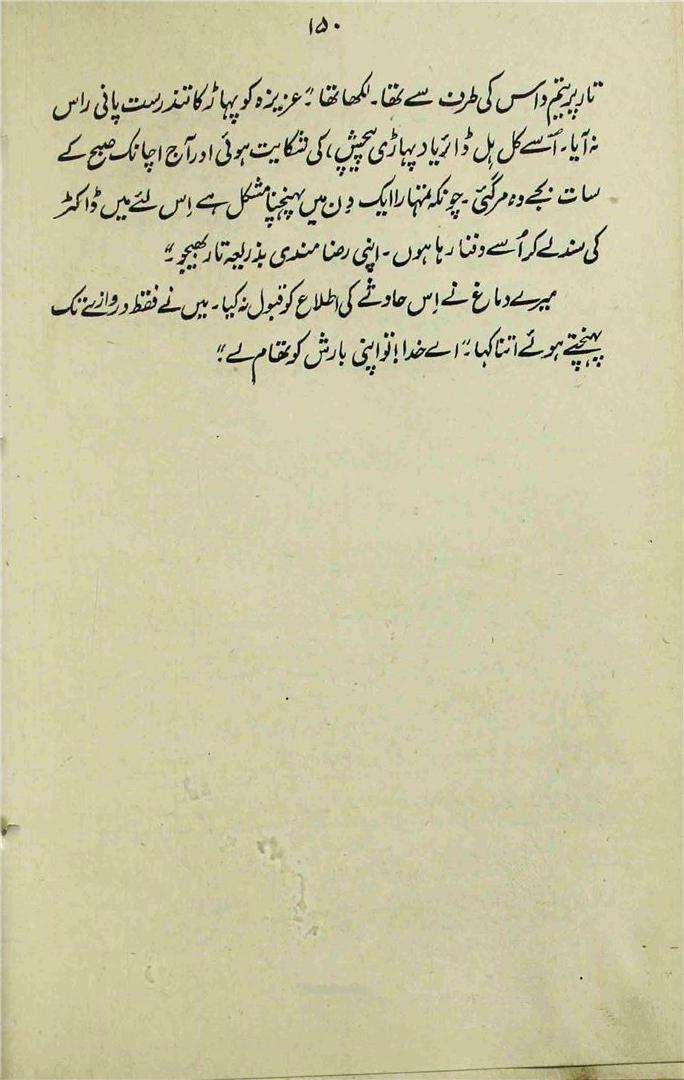 ۱۵۰
تار پریتم داس کی طرف سے تھا۔ لکھا تھا "عزیزہ کو پہاڑ کا تندرست پانی راس
نہ آیا۔ اُسے کل ہل ڈائریا د پہاڑی پیچش، کی شکایت ہوئی اور آج اچانک صبح کے
سات بجے وہ مر گئی۔ چونکہ تمہارا ایک دن میں پہنچنا مشکل ہے اِس لئے میں ڈاکٹر
کی سند لے کر اُسے دفنا رہا ہوں۔ اپنی رضا مندی بذریعہ تار بھیجو۔"
میرے دماغ نے اِس حادثے کی اطلاع کو قبول نہ کیا۔ میں نے فقط دروازے تک
پہنچتے ہوئے اتنا کہا۔ "اے خدا! تو اپنی بارش کو تھام لے"